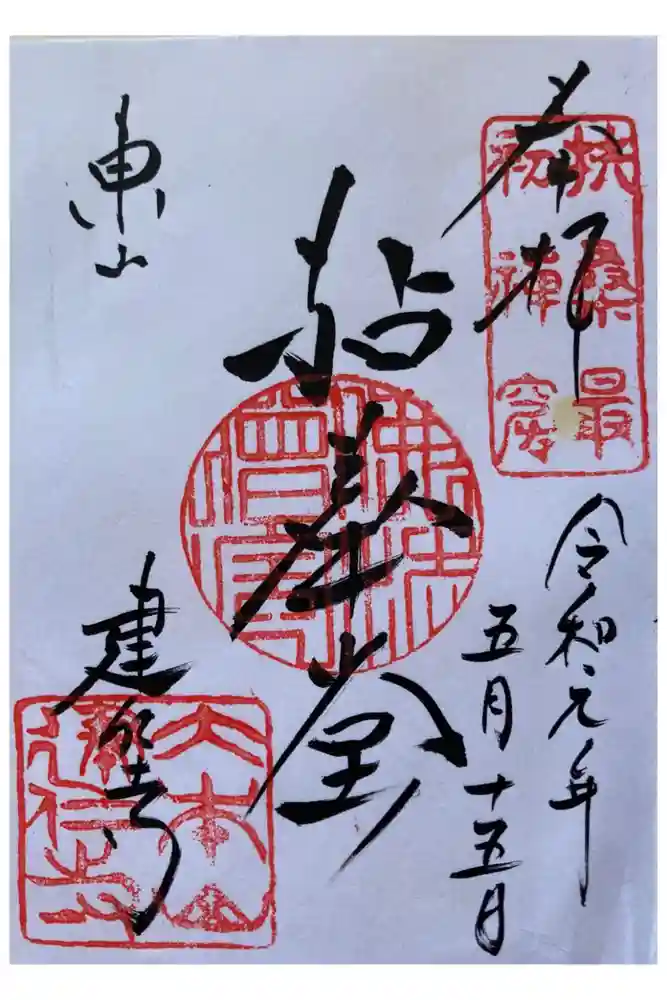 奉拝
扶桑最
初禅窟
令和元年
五月十五日
拈華堂
佛法
僧寶
東山
建仁寺
大本山
建仁寺